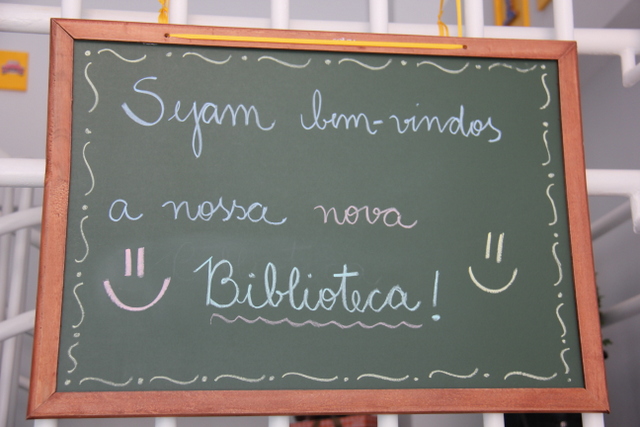 Sejam bem-vindos
a nossa nova
Biblioteca!